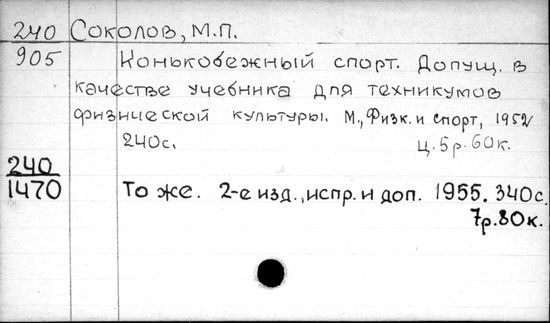 240 Соколов, М.П.
905 Конькобежный спорт. Допущ. в
качестве учебника для техникумов
физической культуры. М., Физк. и спорт, 1952
240с. Ц. 5р. 60к.
240
1470 То же. 2-е изд., испр. и доп. 1955. 340с.
7р. 80к.